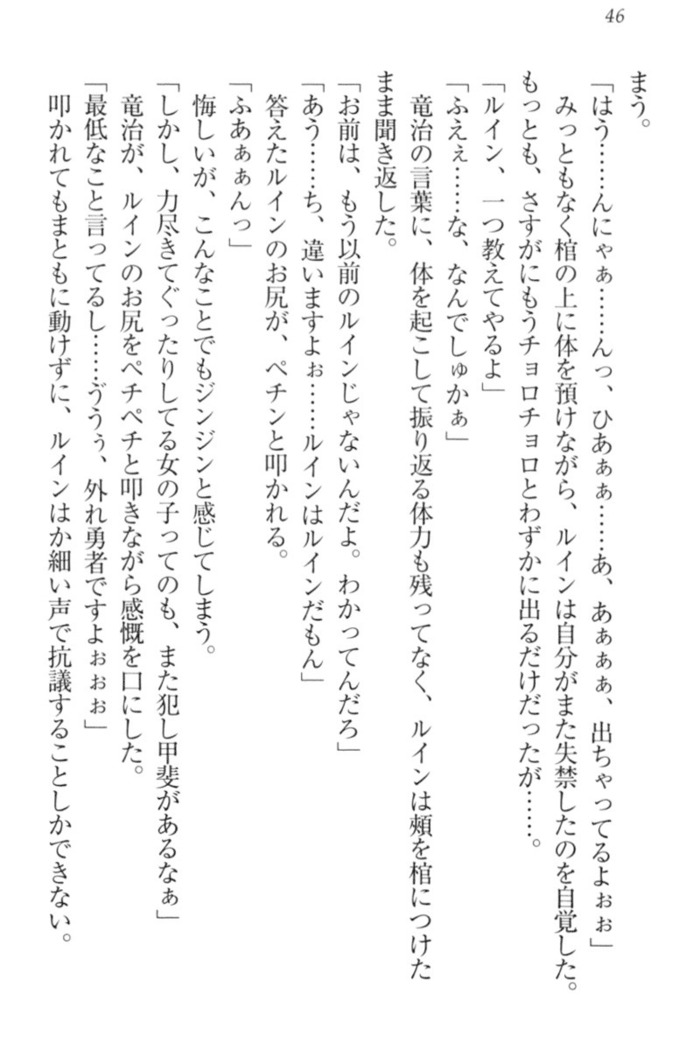 46
まう。
「はう……んにゃぁ……んっ、ひあぁぁ……あ、あぁぁぁ、出ちゃってるよぉぉ」
みっともなく棺の上に体を預けながら、ルインは自分がまた失禁したのを自覚した。
もっとも、さすがにもうチョロチョロとわずかに出るだけだったが……。
「ルイン、一つ教えてやるよ」
「ふえぇ……な、なんでしゅかぁ」
竜治の言葉に、体を起こして振り返る体力も残ってなく、ルインは頰を棺につけた
まま聞き返した。
「お前は、もう以前のルインじゃないんだよ。わかってんだろ」
「あう……ち、違いますよぉ……ルインはルインだもん」
答えたルインのお尻が、ペチンと叩かれる。
「ふあぁぁんっ」
悔しいが、こんなことでもジンジンと感じてしまう。
「しかし、力尽きてぐったりしてる女の子ってのも、また犯し甲斐があるなぁ」
竜治が、ルインのお尻をペチペチと叩きながら感慨を口にした。
「最低なこと言ってるし……ううぅ、外れ勇者ですよぉぉぉ」
叩かれてもまともに動けずに、ルインはか細い声で抗議することしかできない。